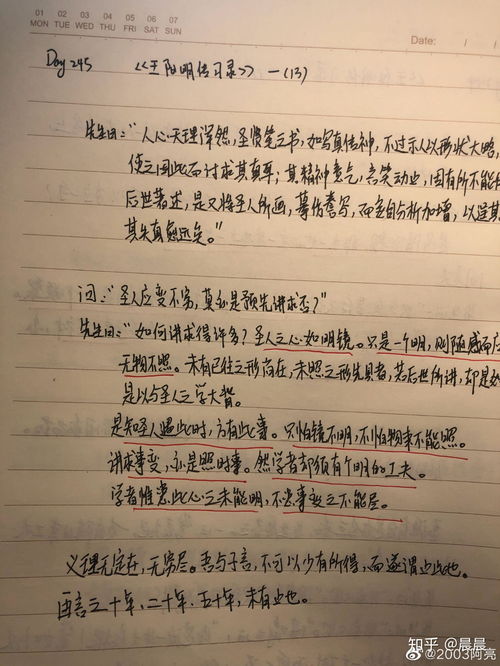 01 02 03 04 05 06 07
MON TUE WED THU FRI SAT SUN
Date: / /
Day 245 《王阳明传习录》一(13)
先生曰:“人心天理浑然,圣贤笔之书,如写真传神,不过示人以形状大略,
使之因此而讨求其真耳;其精神意气,言笑动止,固有所不能
后世著述,是又将圣人所画,摹仿誊写,而妄自分析加增,以逞其
其失真愈远矣。”
问:“圣人应变不穷,莫亦是预先讲求否?”
先生曰:“如何讲求得许多?圣人之心如明镜。只是一个明,则随感而应
无物不照。未有已往之形尚在,未照之形先具者,若后世所讲,却是如
是以与圣人之学大背。
是知圣人遇此时,方有此事。只怕镜不明,不怕物来不能照。
讲求事变,亦是照时事。然学者却须有个明的工夫。
学者惟患此心之未能明,不患事变之不能尽。
义理无定在,无穷尽。吾与子言,不可以少有所得,而遂谓止此也。
再言之十年,二十年,五十年,未有止也。
知乎 @晨晨
@2003阿亮